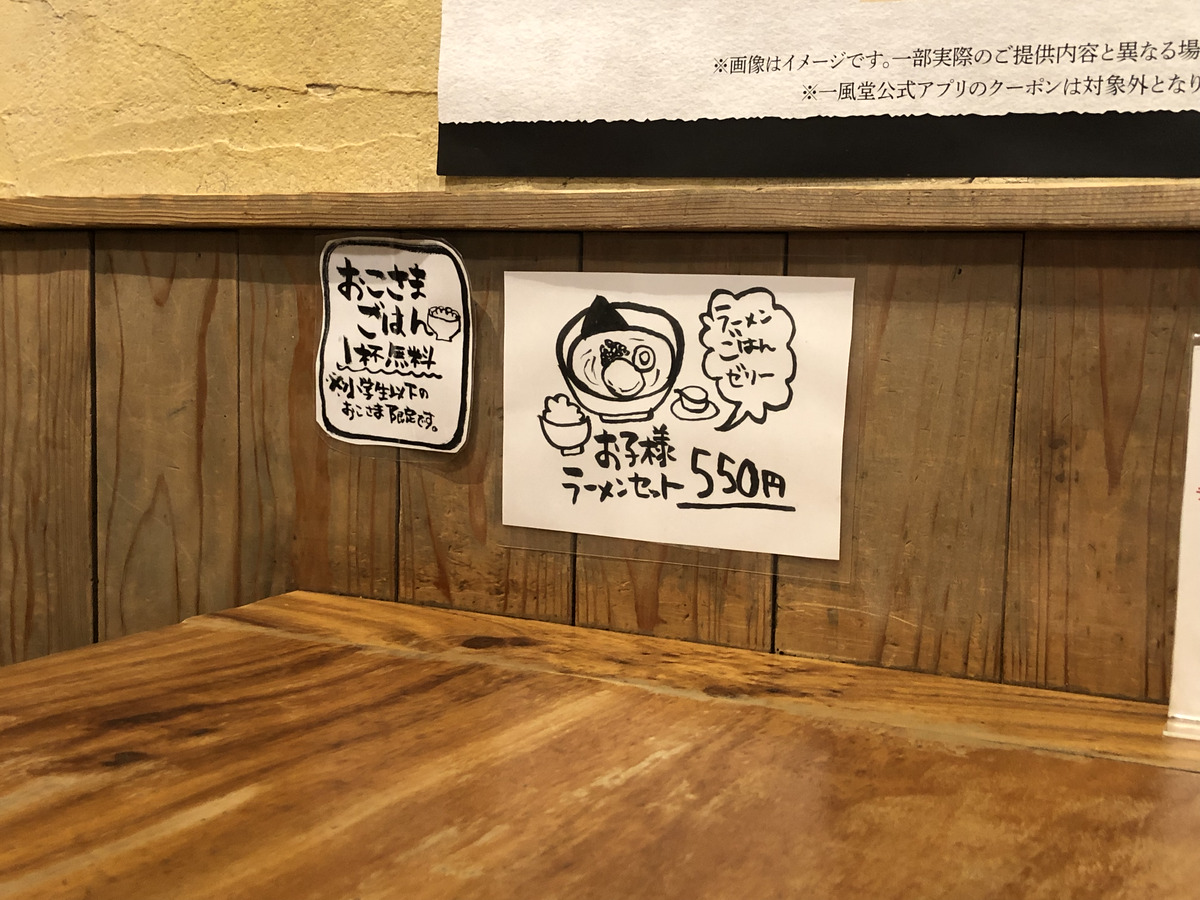 ※画像はイメージです。一部実際のご提供内容と異なる場
※一風堂公式アプリのクーポンは対象外となり
おこさま
ごはん
1杯無料
※小学生以下の
おこさま限定です。
ラーメン
ごはん
ゼリー
お子様
ラーメンセット 550円